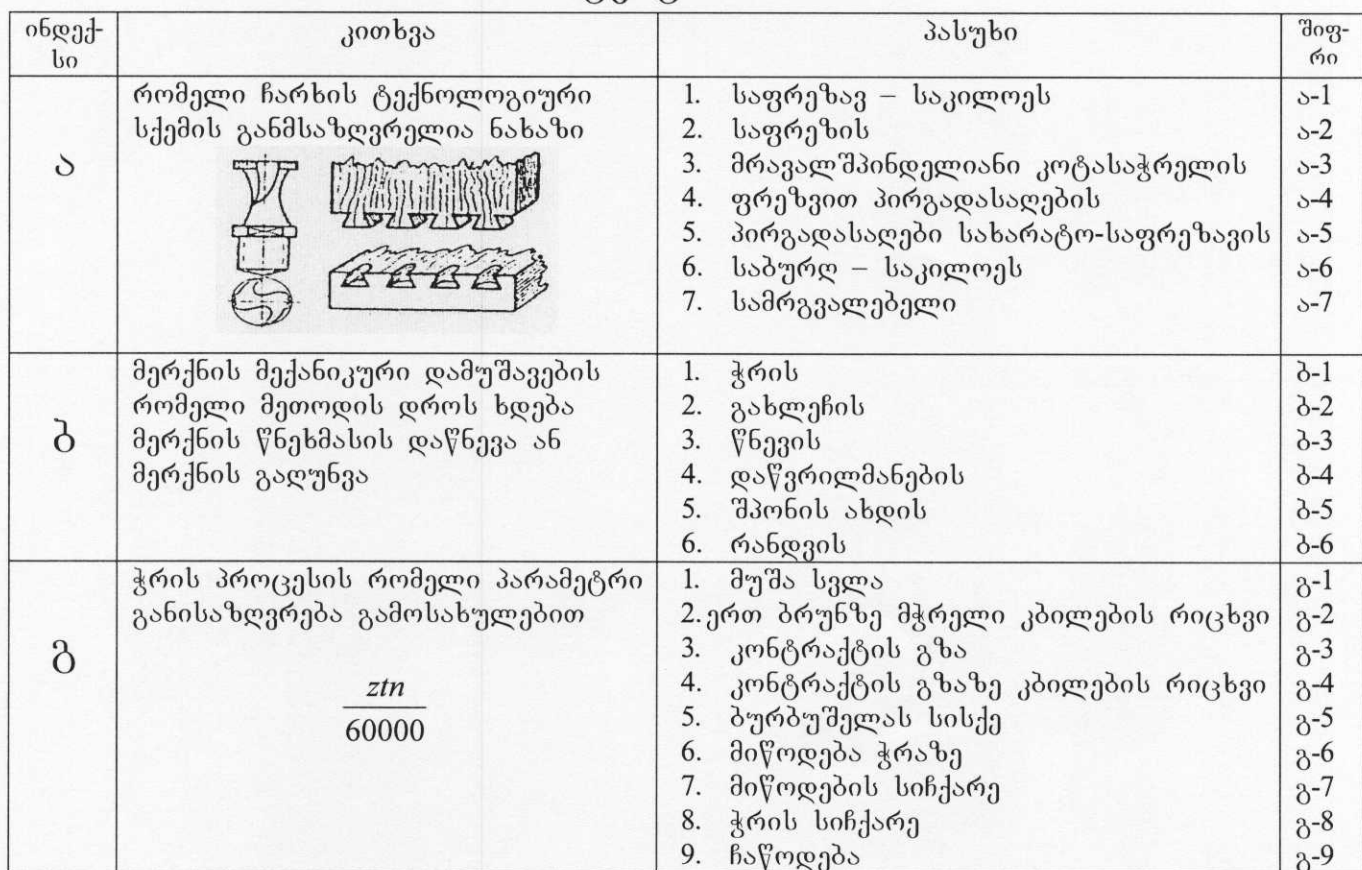 ინდექ-
სი
კითხვა
პასუხი
შიფ-
რი
ა
რომელი ჩარხის ტექნოლოგიური
სქემის განმსაზღვრელია ნახაზი
1. საფრეზავ – საკილოეს
2. საფრეზის
3. მრავალშპინდელიანი კოტასაჭრელის
4. ფრეზვით პირგადასაღების
5. პირგადასაღები სახარატო-საფრეზავის
6. საბურღ – საკილოეს
7. სამრგვალებელი
ა-1
ა-2
ა-3
ა-4
ა-5
ა-6
ა-7
ბ
მერქნის მექანიკური დამუშავების
რომელი მეთოდის დროს ხდება
მერქნის წნეხმასის დაწნევა ან
მერქნის გაღუნვა
1. ჭრის
2. გახლეჩის
3. წნევის
4. დაწვრილმანების
5. შპონის ახდის
6. რანდვის
ბ-1
ბ-2
ბ-3
ბ-4
ბ-5
ბ-6
გ
ჭრის პროცესის რომელი პარამეტრი
განისაზღვრება გამოსახულებით
ztn
60000
1. მუშა სვლა
2.ერთ ბრუნზე მჭრელი კბილების რიცხვი
3. კონტრაქტის გზა
4. კონტრაქტის გზაზე კბილების რიცხვი
5. ბურბუშელას სისქე
6. მიწოდება ჭრაზე
7. მიწოდების სიჩქარე
8. ჭრის სიჩქარე
9. ჩაწოდება
გ-1
გ-2
გ-3
გ-4
გ-5
გ-6
გ-7
გ-8
გ-9